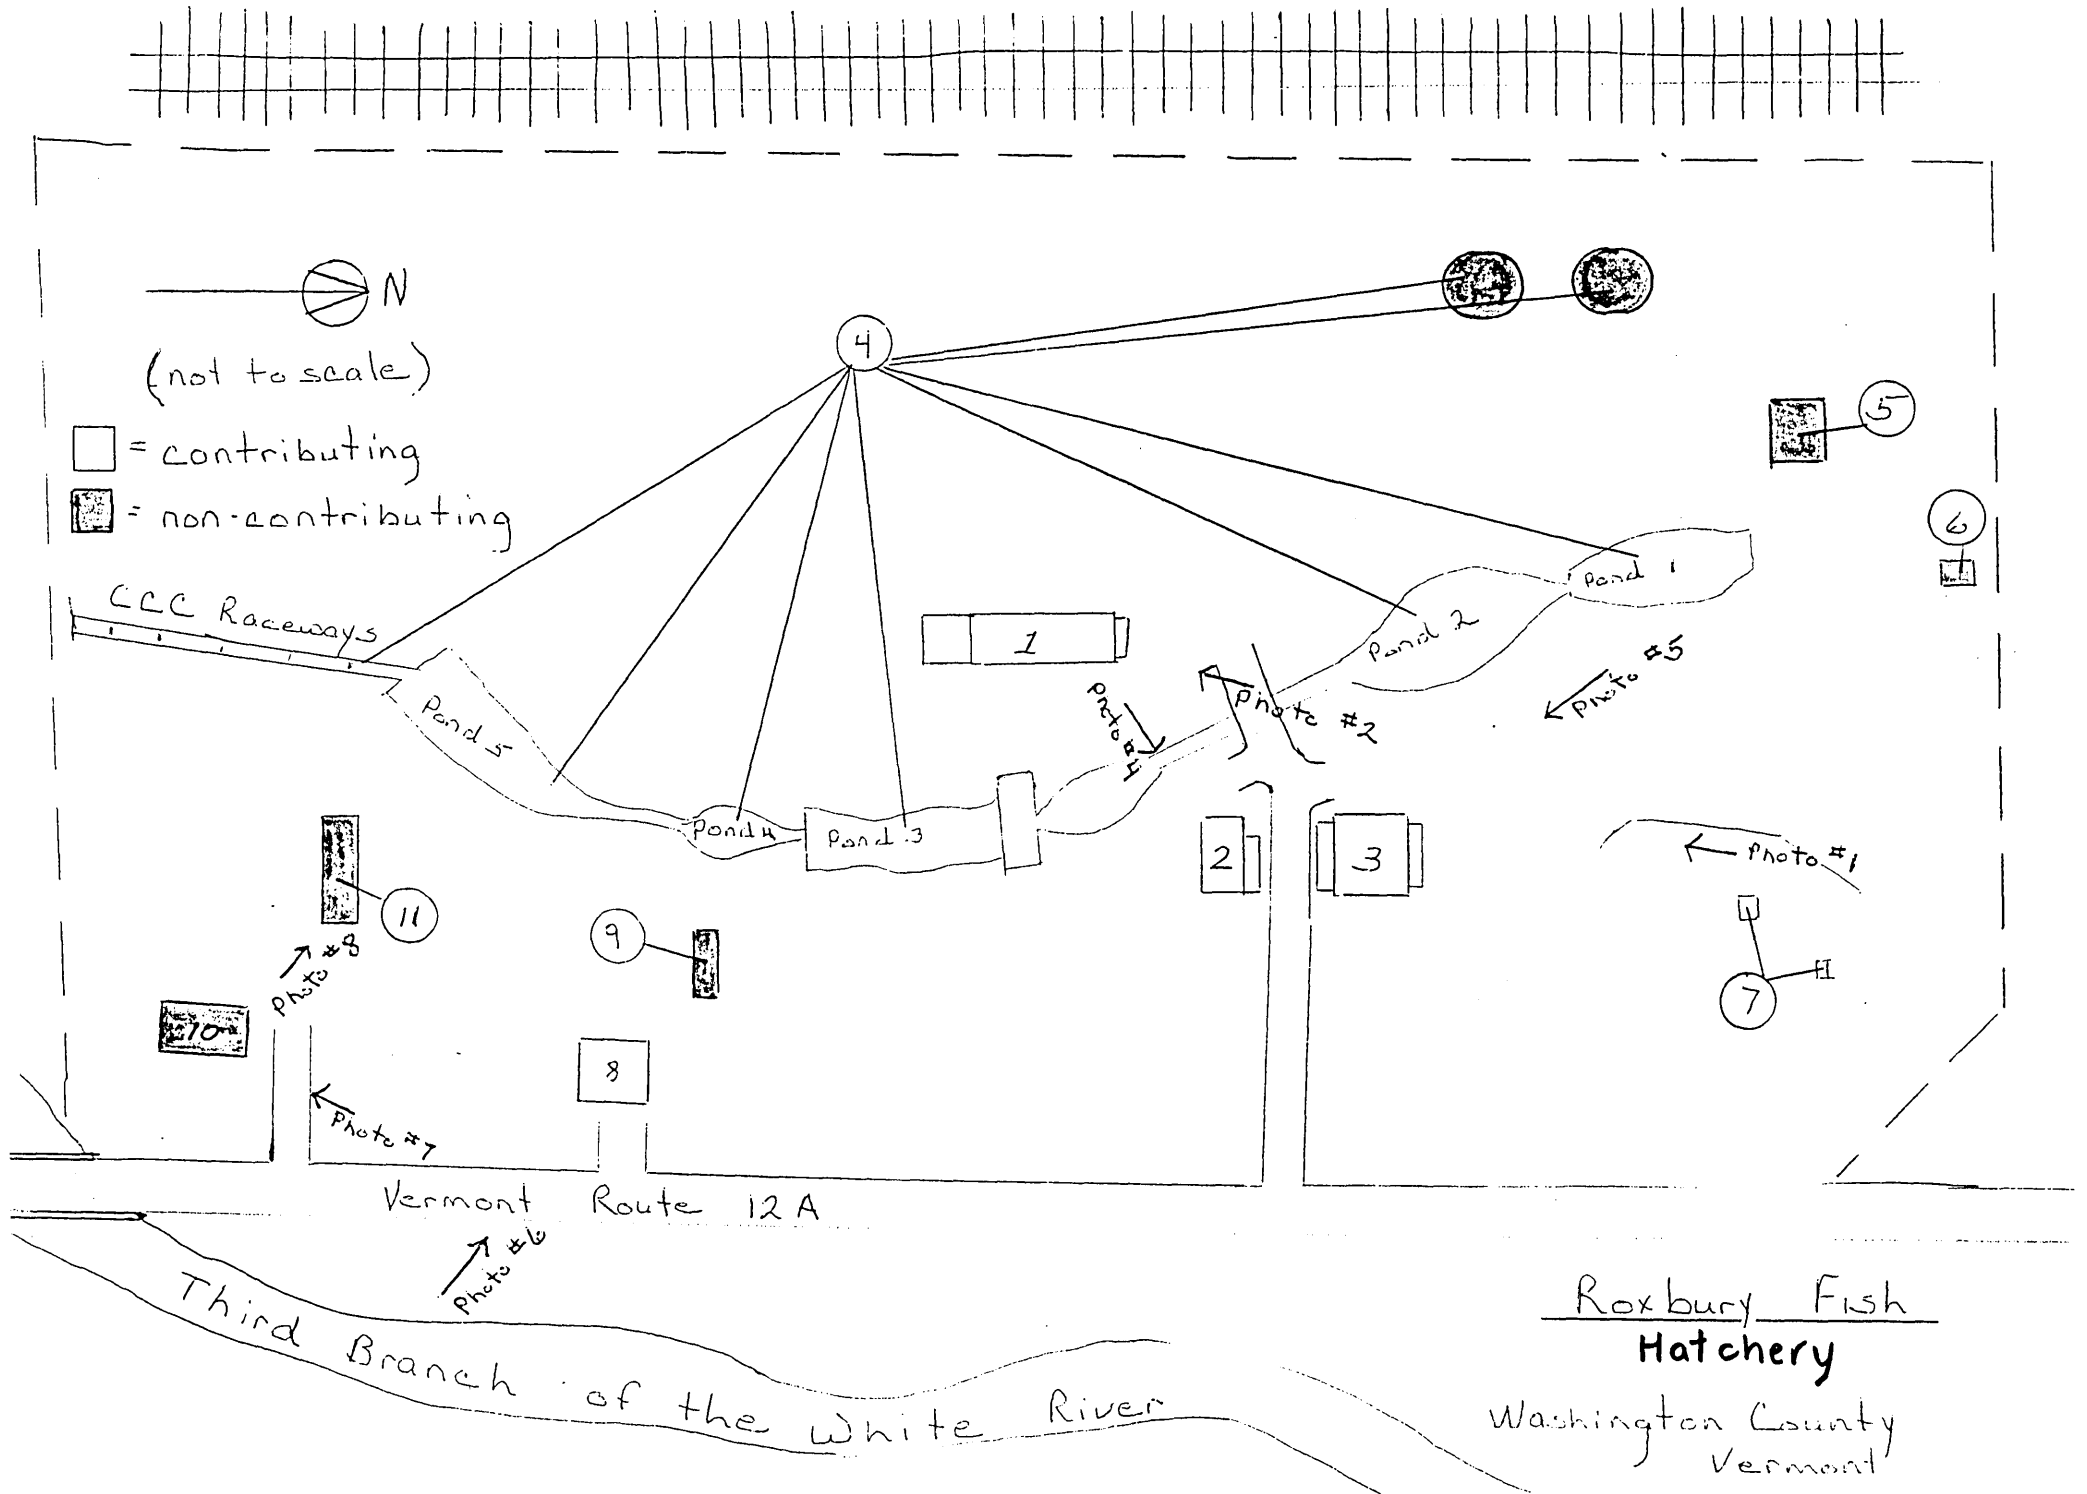 N
(not to scale)
= contributing
= non-contributing
4
5
6
CCC Raceways
Pond 1
Pond 2
1
Photo #5
Photo #2
Photo #4
Pond 5
Pond 4
Pond 3
2
3
Photo #1
11
9
7
Photo #8
10
8
Photo #7
Vermont Route 12A
Photo #6
Third Branch of the White River
Roxbury Fish
Hatchery
Washington County
Vermont